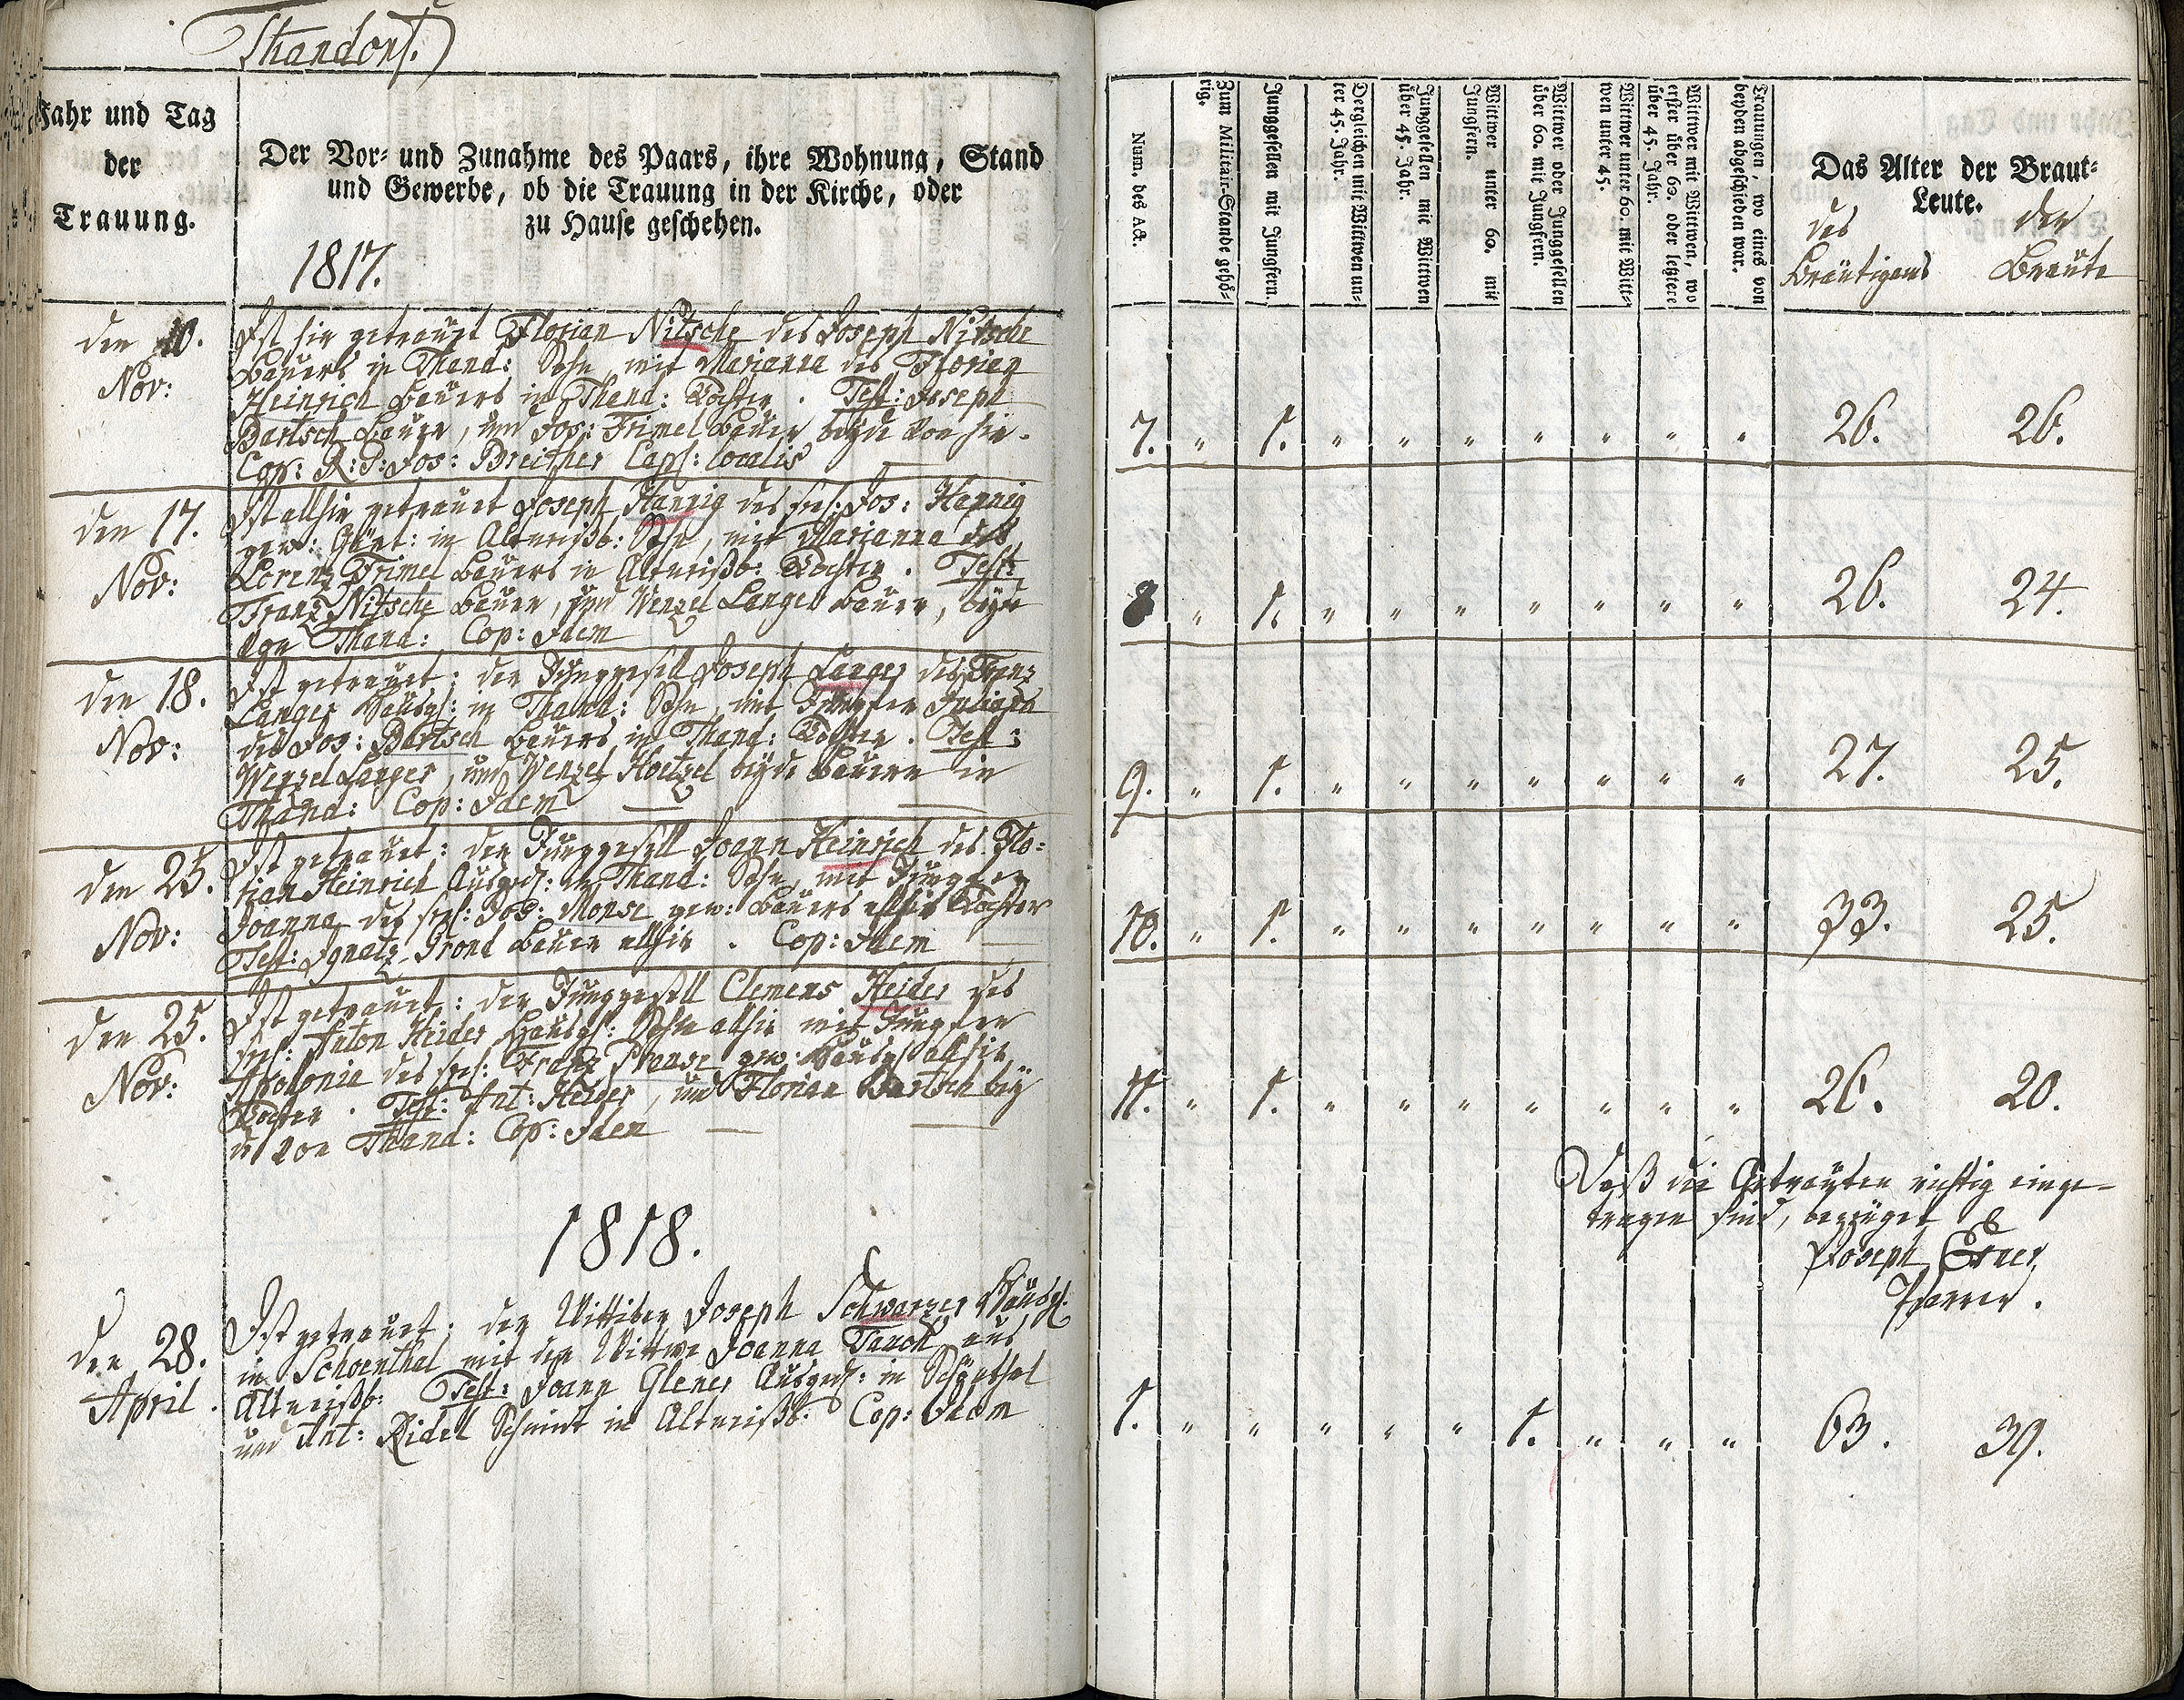 Thandorf.
Jahr und Tag
der
Trauung.
Der Vor- und Zunahme des Paars, ihre Wohnung, Stand
und Gewerbe, ob die Trauung in der Kirche, oder
zu Hause geschehen.
1817.
Num. des Act.
Zum Militair-Stande gehö-
rig.
Junggesellen mit Jungfern.
Dergleichen mit Wittwen un-
ter 45. Jahr.
Junggesellen mit Wittwen
über 45. Jahr.
Wittwer unter 60. mit
Jungfern.
Wittwer oder Junggesellen
über 60. mit Jungfern.
Wittwer unter 60. mit Witt-
wen unter 45.
Wittwer mit Wittwen, wo
erster über 60. oder letztere
über 45. Jahr.
Trauungen, wo eines von
beyden abgeschieden war.
Das Alter der Braut-
Leute.
des
Bräutigams
der
Braute
den 10.
Nov:
Ist hie getraut Florian Nitsche des Joseph Nitsche
Bauers in Thand: Sohn, mit Marianna des Florian
Heinrich Bauers in Thand: Tochter. Test: Joseph
Bartsch Bauer, und Jos: Frimel Bauer beyde von hie.
Cop: R: P: Jos: Breither Capl: localis
7. " 1. " " " " " " " 26. 26.
den 17.
Nov:
Ist allhie getrauet Joseph Hannig des sel: Jos: Hannig
gew: Gärt: in Altweißb: Sohn, mit Marianna des
Lorenz Frimel Bauers in Altweißb: Tochter. Test:
Franz Nitsche Bauer, und Wenzel Langer Bauer, beyde
von Thand: Cop: Idem
8 " 1. " " " " " " " 26. 24.
den 18.
Nov:
Ist getrauet: der Junggesell Joseph Langer des Franz
Langer Häusl: in Thand: Sohn, mit Jungfer Juliana
des Jos: Bartsch Bauers in Thand: Tochter. Test:
Wenzel Langer, und Wenzel Hoetzel beyde Bauern in
Thand: Cop: Idem
9. " 1. " " " " " " " 27. 25.
den 25.
Nov:
Ist getrauet: der Junggesell Joann Heinrich des Flo=
rian Heinrich Ausged: in Thand: Sohn, mit Jungfer
Joanna des sel: Jos: Monse gew: Bauers allhie Tochter
Test: Ignatz Grond Bauer allhie. Cop: Idem
10. " 1. " " " " " " " 33. 25.
den 25.
Nov:
Ist getrauet: der Junggesell Clemens Heider des
sel: Anton Heider Häusl: Sohn allhie mit Jungfer
Apolonia des sel: Franz gew: Häusl: allhie
Tochter. Test: Ant: Heider, und Florian Bartsch bey
de von Thand: Cop: Idem
11. " 1. " " " " " " " 26. 20.
Daß die Getrauten richtig einge-
tragen sind, bezeuget
Joseph
Pfarrer.
1818.
den 28.
April.
Ist getrauet: der Wittiber Joseph Schwarzer Häusl:
in Schoenthal mit der Wittwe Joanna Tauch aus
Altweißb: Test: Joann Glener Ausged: in Schönthal
und Ant: Ridel Schmidt in Altweißb: Cop: Idem
1. " " " " " 1. " " " 63. 39.